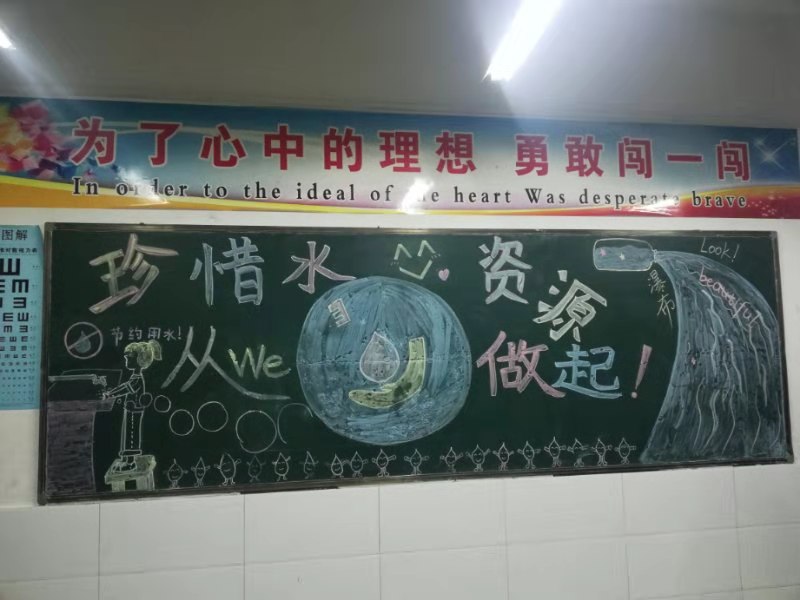 为了心中的理想 勇敢闯一闯
In order to the ideal of the heart Was desperate brave
图解
珍惜水资源
Look!
beautiful
瀑布
节约用水!
从We做起!